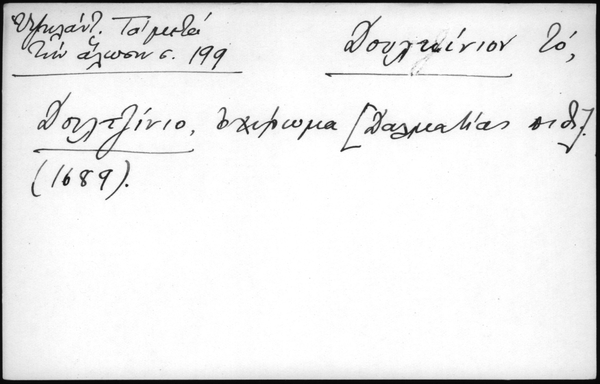 Ὑψηλάντ. Τὰ μετὰ
τὴν ἅλωσιν σ. 199
Δουλτζίνιον τό,
Δουλτζίνιο, ὀχύρωμα [Δαλματίας
(1689).